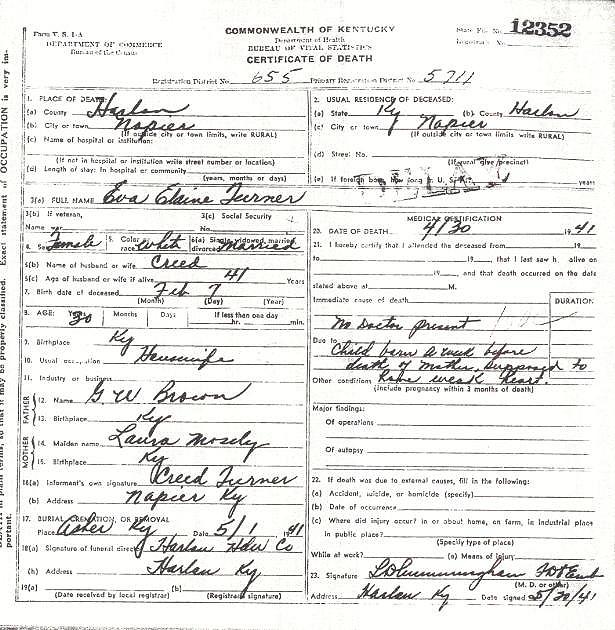 Form V. S. 1-A
DEPARTMENT OF COMMERCE
Bureau of the Census
COMMONWEALTH OF KENTUCKY
Department of Health
BUREAU OF VITAL STATISTICS
CERTIFICATE OF DEATH
State File No. 12352
Registrar's No.
Registration District No. 655 Primary Registration District No. 5711
1. PLACE OF DEATH:
(a) County Harlan
(b) City or town Napier
(If outside city or town limits, write RURAL)
(c) Name of hospital or institution:
(If not in hospital or institution write street number or location)
(d) Length of stay: In hospital or community
(years, months or days)
2. USUAL RESIDENCE OF DECEASED:
(a) State Ky (b) County Harlan
(c) City or town Napier
(If outside city or town limits, write RURAL)
(d) Street No.
(If rural give precinct)
(e) If foreign born, how long in U. S. A.? years
3(a) FULL NAME Eva Elaine Turner
3(b) If veteran, 3(c) Social Security
Name war No.
4. Sex Female 5. Color or race White 6(a) Single, widowed, married, divorced Married
6(b) Name of husband or wife Creed
6(c) Age of husband or wife if alive 41 Years
7. Birth date of deceased Feb 7
(Month) (Day) (Year)
8. AGE: Years 30 Months Days If less than one day
hr. min.
9. Birthplace Ky
10. Usual occupation Housewife
11. Industry or business
FATHER
12. Name G. W Brown
13. Birthplace Ky
MOTHER
14. Maiden name Laura Mosely
15. Birthplace Ky
16(a) Informant's own signature Creed Turner
(b) Address Napier Ky
17. BURIAL, CREMATION, OR REMOVAL
Place Asher Ky Date 5/1 1941
18(a) Signature of funeral director Harlan Hdw Co
(b) Address Harlan Ky
19(a) (b)
(Date received by local registrar) (Registrar's signature)
MEDICAL CERTIFICATION
20. DATE OF DEATH 4/30 1941
21. I hereby certify that I attended the deceased from 19
to 19, that I last saw h alive on
19, and that death occurred on the date
stated above at M.
Immediate cause of death DURATION
No Doctor present
Due to Child born a week before
death of mother, supposed to
Other conditions have weak heart.
(Include pregnancy within 3 months of death)
Major findings:
Of operations
Of autopsy
22. If death was due to external causes, fill in the following:
(a) Accident, suicide, or homicide (specify)
(b) Date of occurrence
(c) Where did injury occur? in or about home, on farm, in industrial place
in public place?
(Specify type of place)
While at work? (e) Means of injury
23. Signature
(M. D. or other)
Address Harlan Ky Date signed 5/30/41